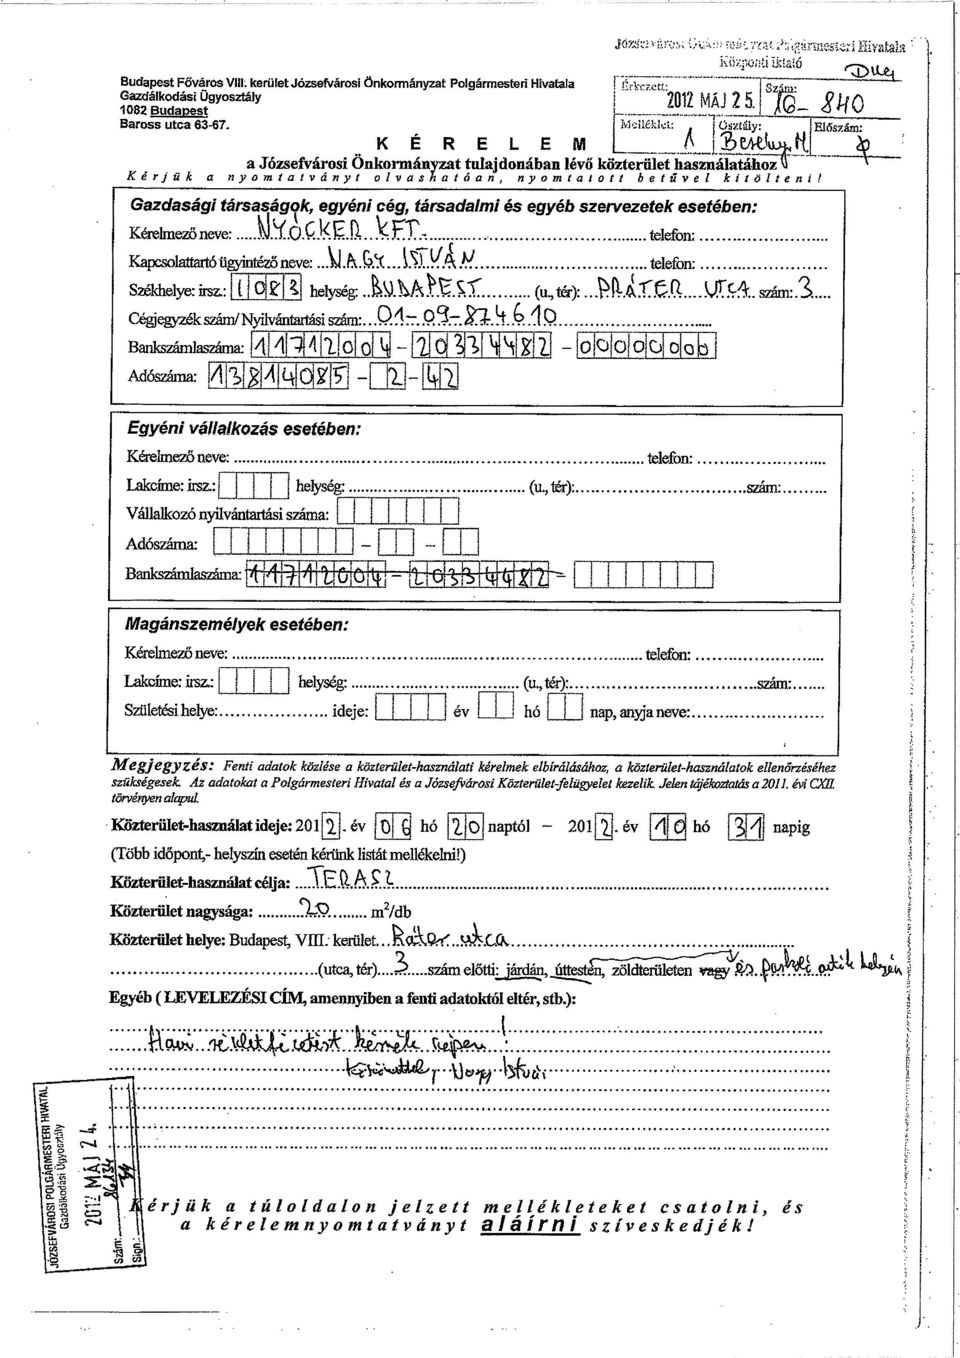 Józsefvárosi Önkormányzat Polgármesteri Hivatala
Központi iktató
Érkezett: 2012 MÁJ 25. Szám: 16- 840
Melléklet: 1 Osztály: Előszám:
Budapest Főváros VIII. kerület Józsefvárosi Önkormányzat Polgármesteri Hivatala
Gazdálkodási Ügyosztály
1082 Budapest
Baross utca 63-67.
K É R E L E M
a Józsefvárosi Önkormányzat tulajdonában lévő közterület használatához
Kérjük a nyomtatványt olvashatóan, nyomtatott betűvel kitölteni!
Gazdasági társaságok, egyéni cég, társadalmi és egyéb szervezetek esetében:
Kérelmező neve: NYÓCKER KFT. telefon:
Kapcsolattartó ügyintéző neve: NAGY ISTVÁN telefon:
Székhelye: irsz.: 1083 helység: BUDAPEST (u., tér): PRÁTER UTCA szám: 3
Cégjegyzék szám/Nyilvántartási szám: 01-09-874610
Bankszámlaszáma: 11712004 - 20334482 - 00000000
Adószáma: 13814085 - 2 - 42
Egyéni vállalkozás esetében:
Kérelmező neve: telefon:
Lakcíme: irsz.: helység: (u., tér): szám:
Vállalkozó nyilvántartási száma:
Adószáma: - -
Bankszámlaszáma: 11712004 - 20334482 -
Magánszemélyek esetében:
Kérelmező neve: telefon:
Lakcíme: irsz.: helység: (u., tér): szám:
Születési helye: ideje: év hó nap, anyja neve:
Megjegyzés: Fenti adatok közlése a közterület-használati kérelmek elbírálásához, a közterület-használatok ellenőrzéséhez
szükségesek. Az adatokat a Polgármesteri Hivatal és a Józsefvárosi Közterület-felügyelet kezelik. Jelen tájékoztatás a 2011. évi CXII.
törvényen alapul.
Közterület-használat ideje: 2012. év 06 hó 20 naptól - 2012. év 10 hó 31 napig
(Több időpont,- helyszín esetén kérünk listát mellékelni!)
Közterület-használat célja: TERASZ
Közterület nagysága: 20 m²/db
Közterület helye: Budapest, VIII. kerület Práter utca
(utca, tér) 3 szám előtti: járdán, úttesten, zöldterületen vagy és parkoló autók helyén
Egyéb (LEVELEZÉSI CÍM, amennyiben a fenti adatoktól eltér, stb.):
Havi részletfizetést kérnék szépen!
Köszönettel, Nagy István
JÓZSEFVÁROSI POLGÁRMESTERI HIVATAL
Gazdálkodási Ügyosztály
2012 MÁJ 24.
Szám:
Sign.:
Kérjük a túloldalon jelzett mellékleteket csatolni, és
a kérelemnyomtatványt aláírni szíveskedjék!